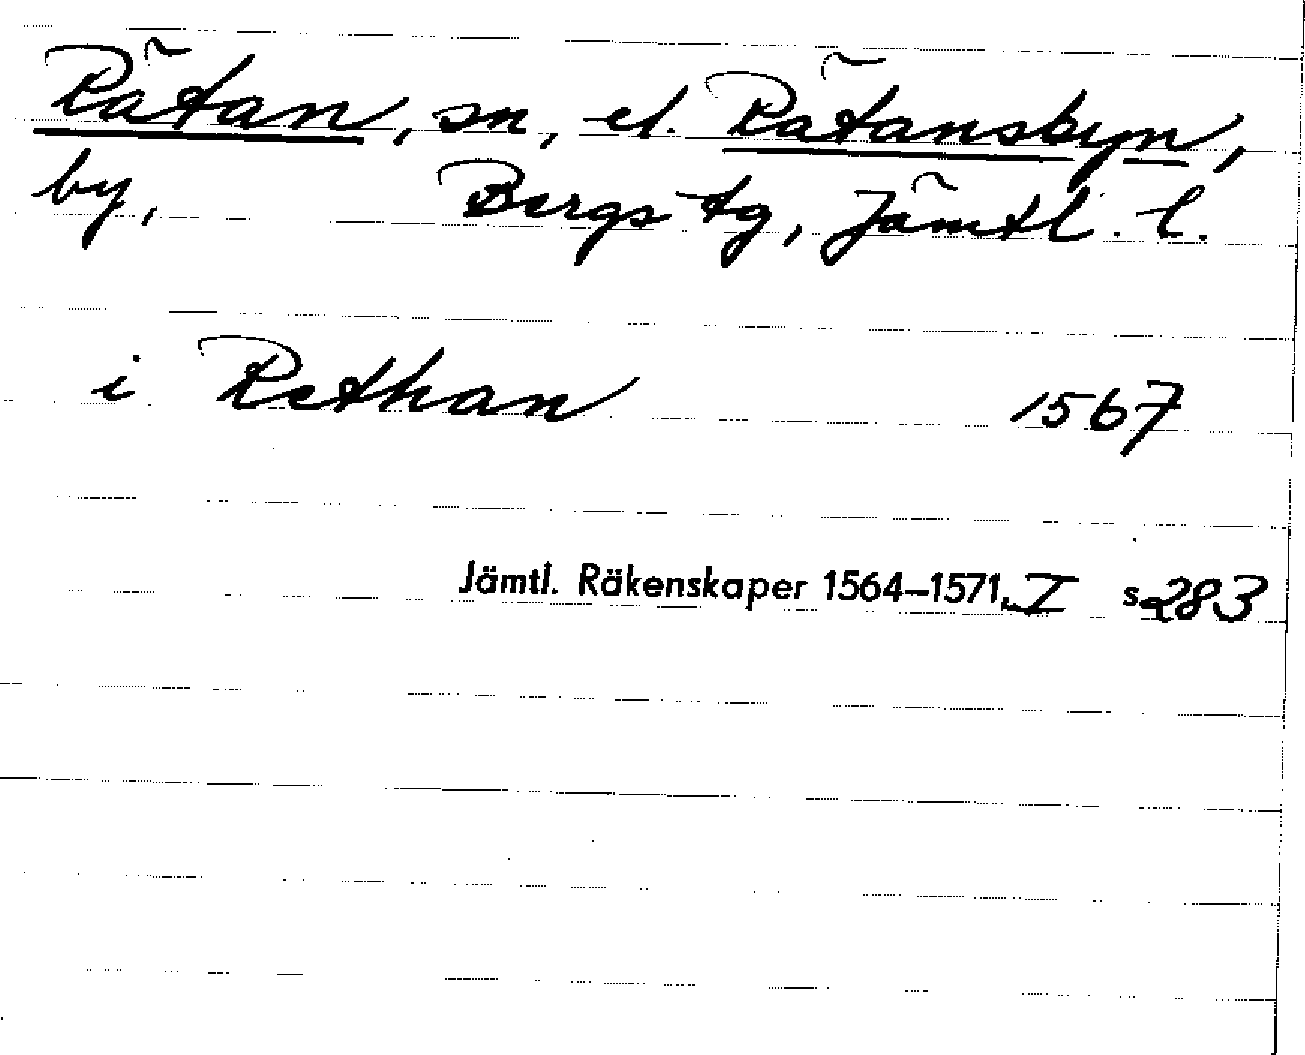 Rätan, sn, el. Rätansbyn,
by, Bergs tg, Jämtl. l.
i Rethan 1567
Jämtl. Räkenskaper 1564–1571, I s 283